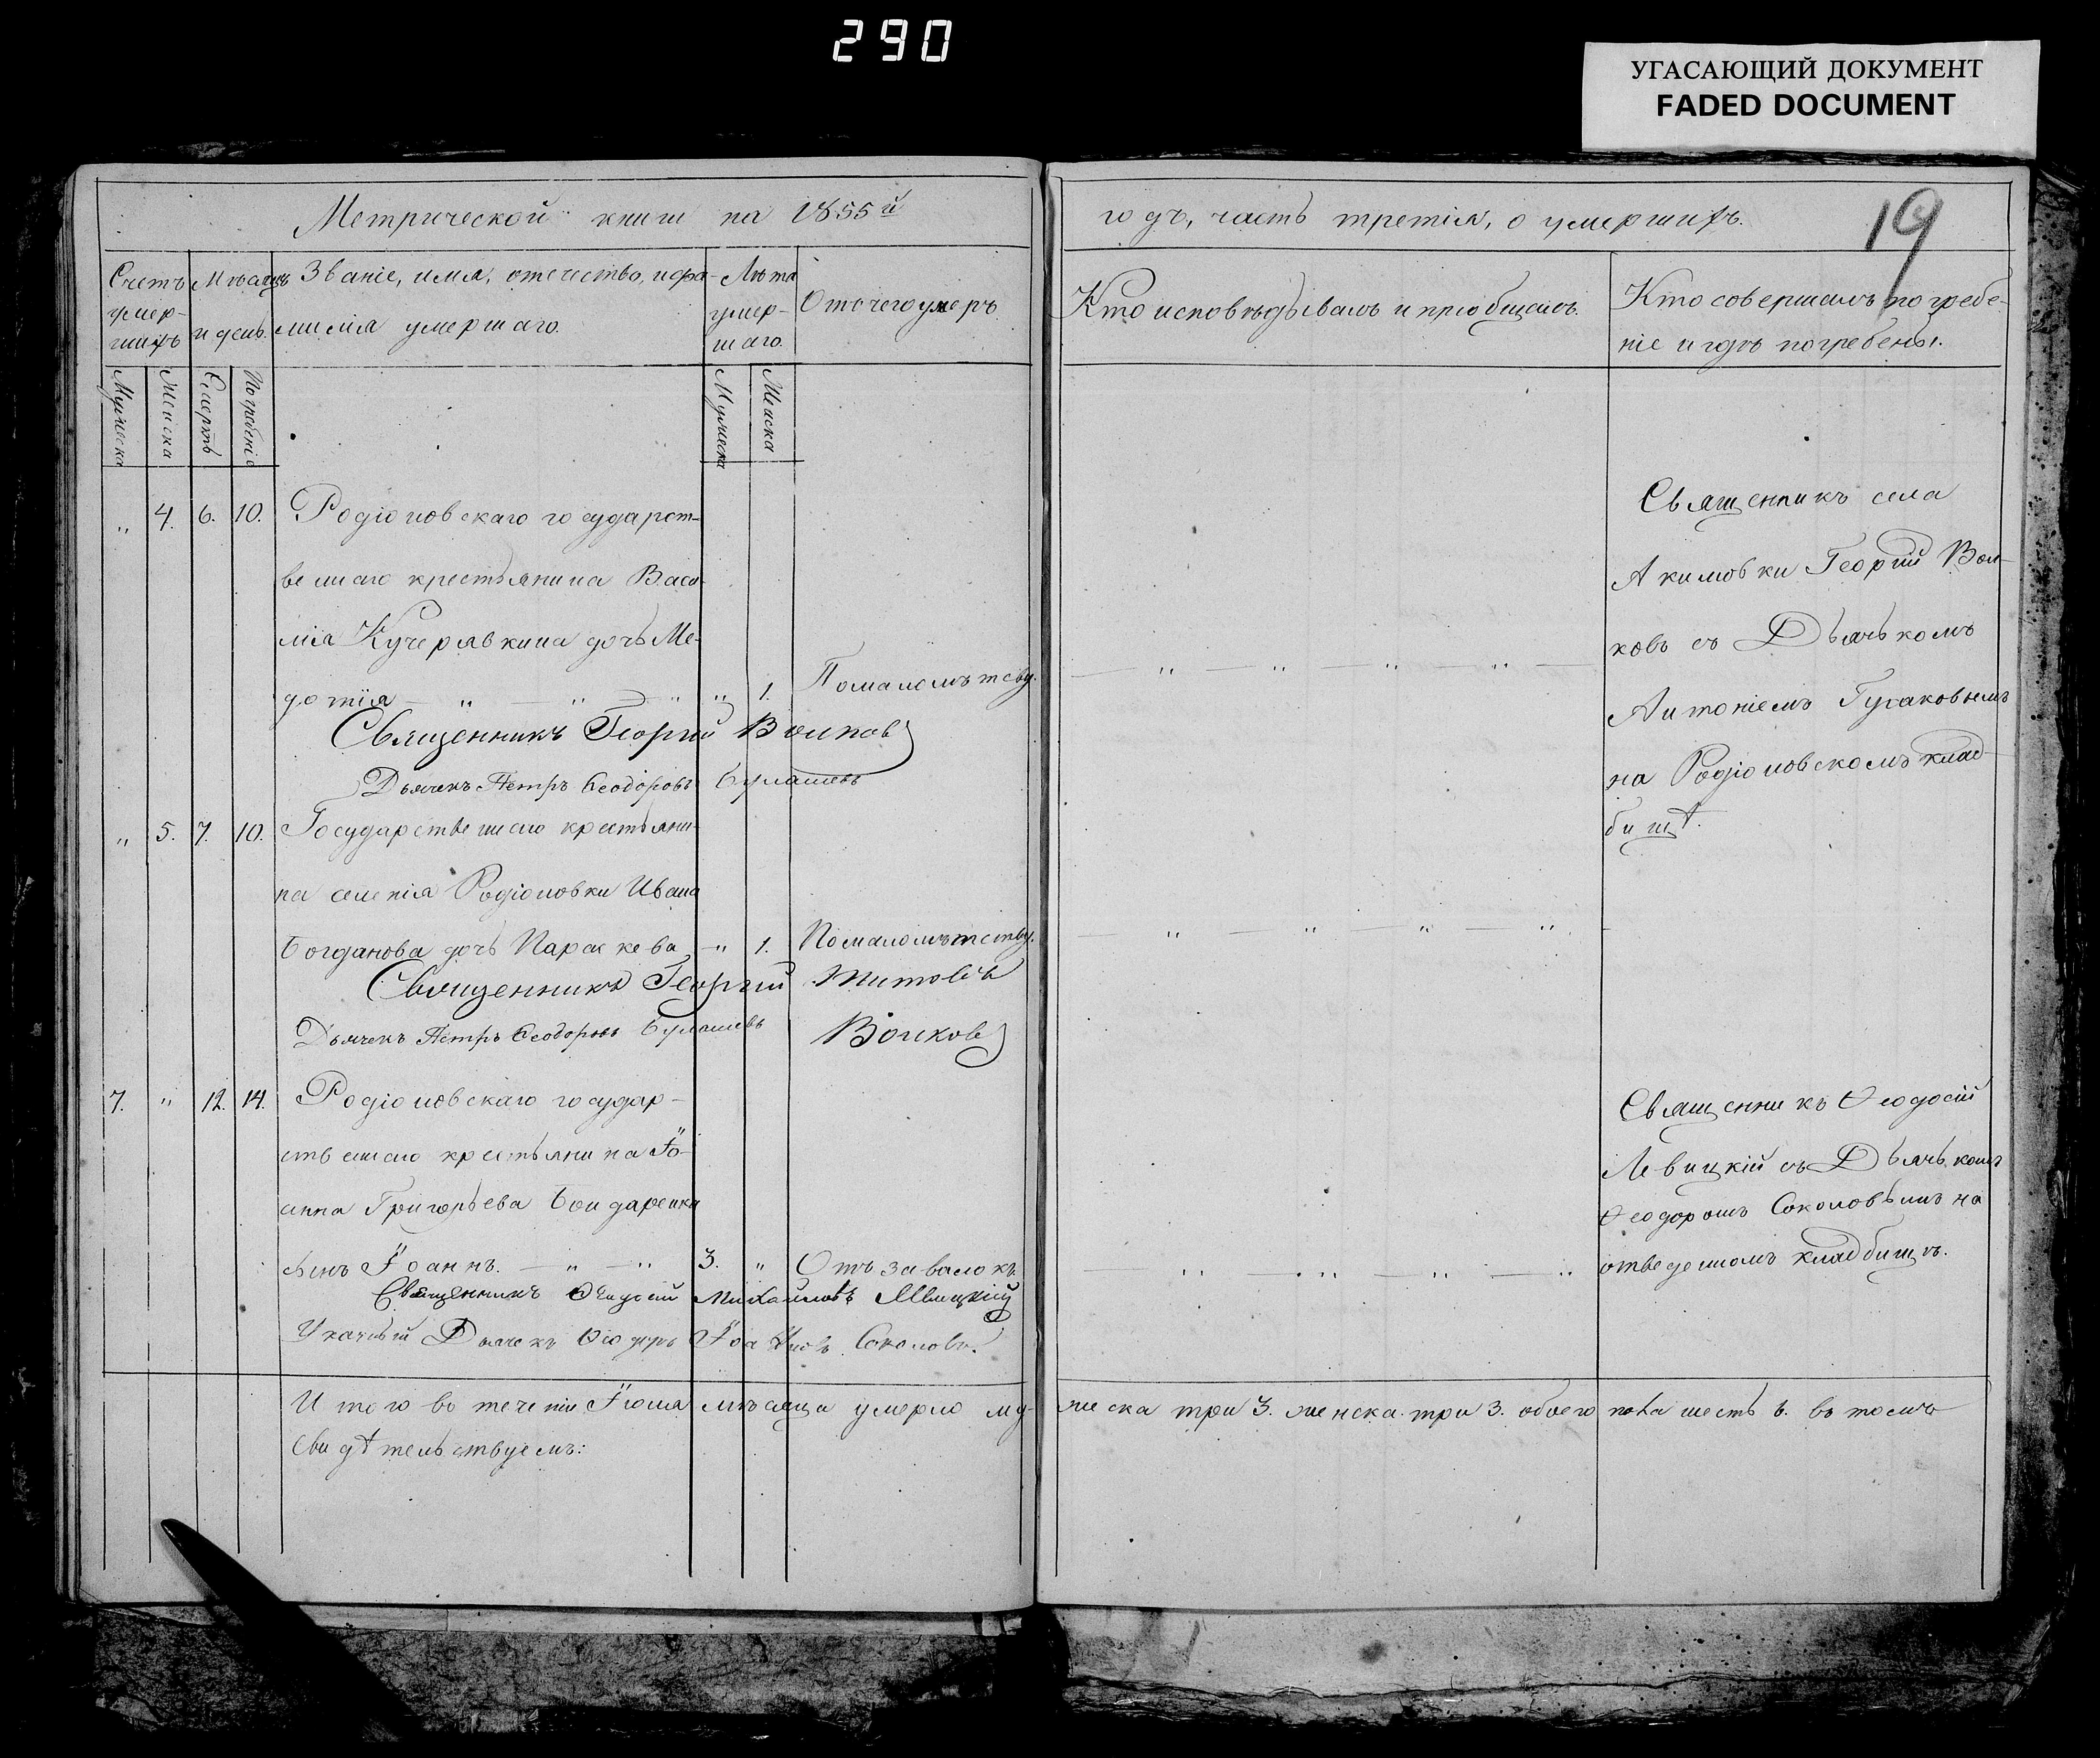 290
УГАСАЮЩИЙ ДОКУМЕНТ
FADED DOCUMENT
19
Метрической книги на 1855й
годъ, часть третія, о умершихъ.
Счетъ умер-
шихъ
Мѣсяцъ
и день.
Званіе, имя, отечество, и фа-
милія умершаго.
Лѣта
умер-
шаго.
Отъ чего умеръ
Кто исповѣдывалъ и пріобщалъ.
Кто совершалъ погребе-
ніе и гдѣ погребены.
Мужеска
Женска
Смерть
Погребеніе
Мужеска
Женска
" 4. 6. 10. Родіоновскаго государст-
веннаго крестьянина Васи-
лія Кучерявкина дочь Ме-
дотія — " — " — " " 1. По маломътству.
Священникъ Георгій Волковъ
Дьячекъ Петръ Ѳеодоровъ Булашевъ
Священникъ села
Акимовки Георгій Вол-
ковъ съ Дьячькомъ
Антоніемъ Гусаковымъ
на Родіоновскомъ клад-
бищѣ.
" 5. 7. 10. Государственнаго крестьяни-
на селенія Родіоновки Ивана
Богданова дочь Параскева — " 1. По маломътству.
Священникъ Георгій Титовъ
Дьячекъ Петръ Ѳеодоровъ Булашевъ
Волковъ
7. " 12. 14. Родіоновскаго государ-
ственнаго крестьянина Іо-
анна Григорьева Бондаренка
сынъ Іоаннъ. — " — " 3. " Отъ завалокъ.
Священникъ Ѳеодосій Михайловъ Левицкій
Указный Дьячекъ Ѳеодоръ Іоанновъ Соколовъ.
Священникъ Ѳеодосій
Левицкій съ Дьячькомъ
Ѳеодоромъ Соколовымъ на
отведенномъ кладбищѣ.
И того въ теченіи Іюля мѣсяца умерло му-
жеска три 3. женска три 3. обоего пола шесть 6. въ томъ
свидѣтельствуемъ: